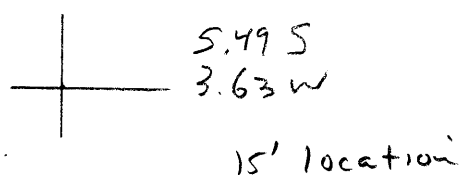 5.49 S
3.63 W
15' location